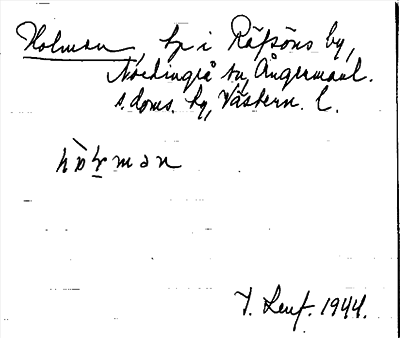 Holman, hp i Räfsöns by,
Nordingrå sn, Ångermanl.
s. doms. hy, Västern. l.
hò̱lman
T. Lenf. 1944.